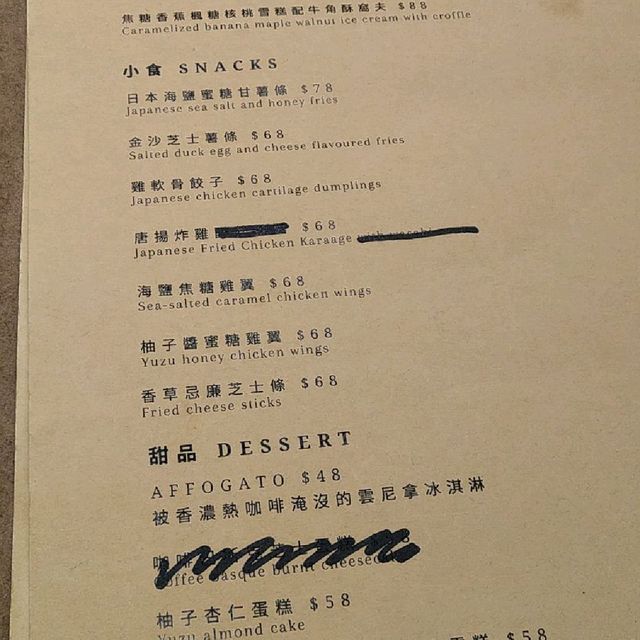 焦糖香蕉楓糖核桃雪糕配牛角酥窩夫 $88
Caramelized banana maple walnut ice cream with croffle
小食 SNACKS
日本海鹽蜜糖甘薯條 $78
Japanese sea salt and honey fries
金沙芝士薯條 $68
Salted duck egg and cheese flavoured fries
雞軟骨餃子 $68
Japanese chicken cartilage dumplings
唐揚炸雞 $68
Japanese Fried Chicken Karaage
海鹽焦糖雞翼 $68
Sea-salted caramel chicken wings
柚子醬蜜糖雞翼 $68
Yuzu honey chicken wings
香草忌廉芝士條 $68
Fried cheese sticks
甜品 DESSERT
AFFOGATO $48
被香濃熱咖啡淹沒的雲尼拿冰淇淋
Coffee basque burnt cheesec
柚子杏仁蛋糕 $58
Yuzu almond cake
蛋糕 $58